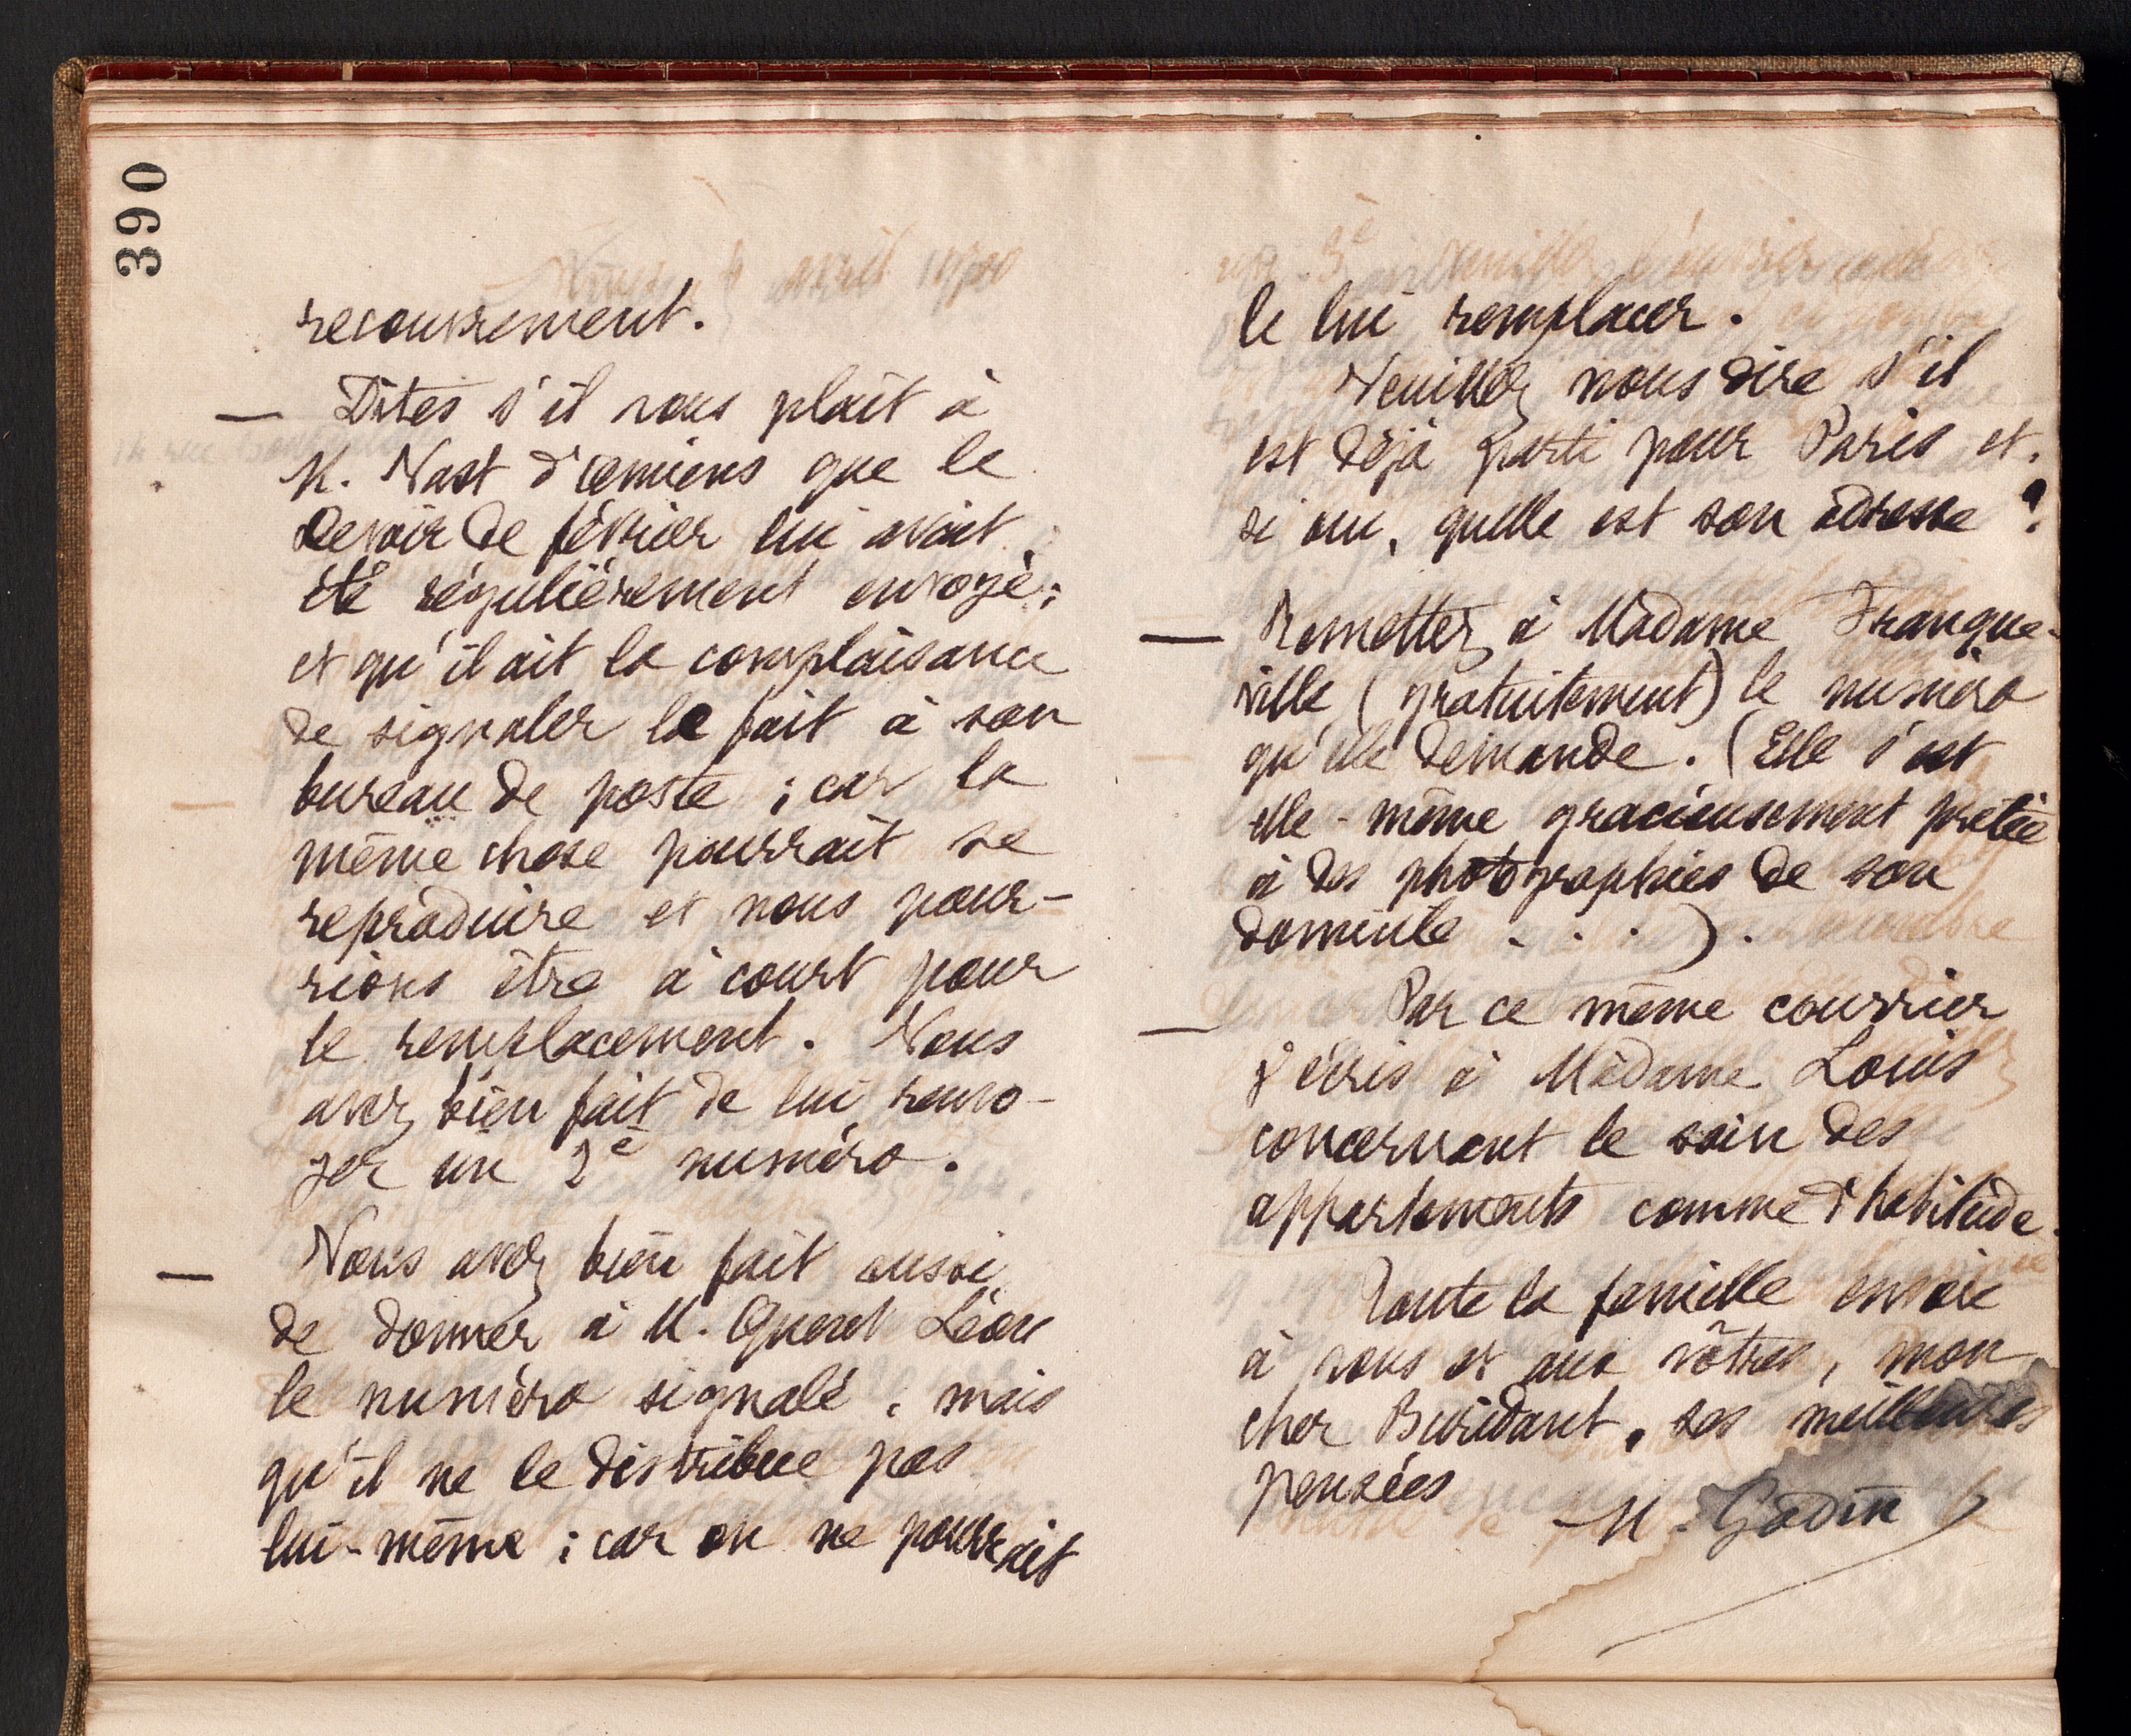 390
recouvrement.
— Dites s'il vous plaît à
M. Nast d'Amiens que le
Devoir de février lui avait
été régulièrement envoyé ;
et qu'il ait la complaisance
de signaler le fait à son
bureau de poste ; car la
même chose pourrait se
reproduire et nous pour-
rions être à court pour
le remplacement. Vous
avez bien fait de lui renvo-
yer un 2e numéro.
— Vous avez bien fait aussi
de donner à M. Quent Léon
le numéro signalé ; mais
qu'il ne le distribue pas
lui-même ; car on ne pourrait
le lui remplacer.
Veuillez nous dire s'il
est déjà parti pour Paris et,
si oui, quelle est son adresse ?
— Remettez à Madame Franque-
ville (gratuitement) le numéro
qu'elle demande. (Elle s'est
elle-même gracieusement prêtée
à des photographies de son
domicile . . . ).
— Par ce même courrier
j'écris à Madame Louis
concernant le soin des
appartements comme d'habitude.
Toute la famille envoie
à vous et aux vôtres, mon
cher Buridant, ses meilleures
pensées
M. Godin